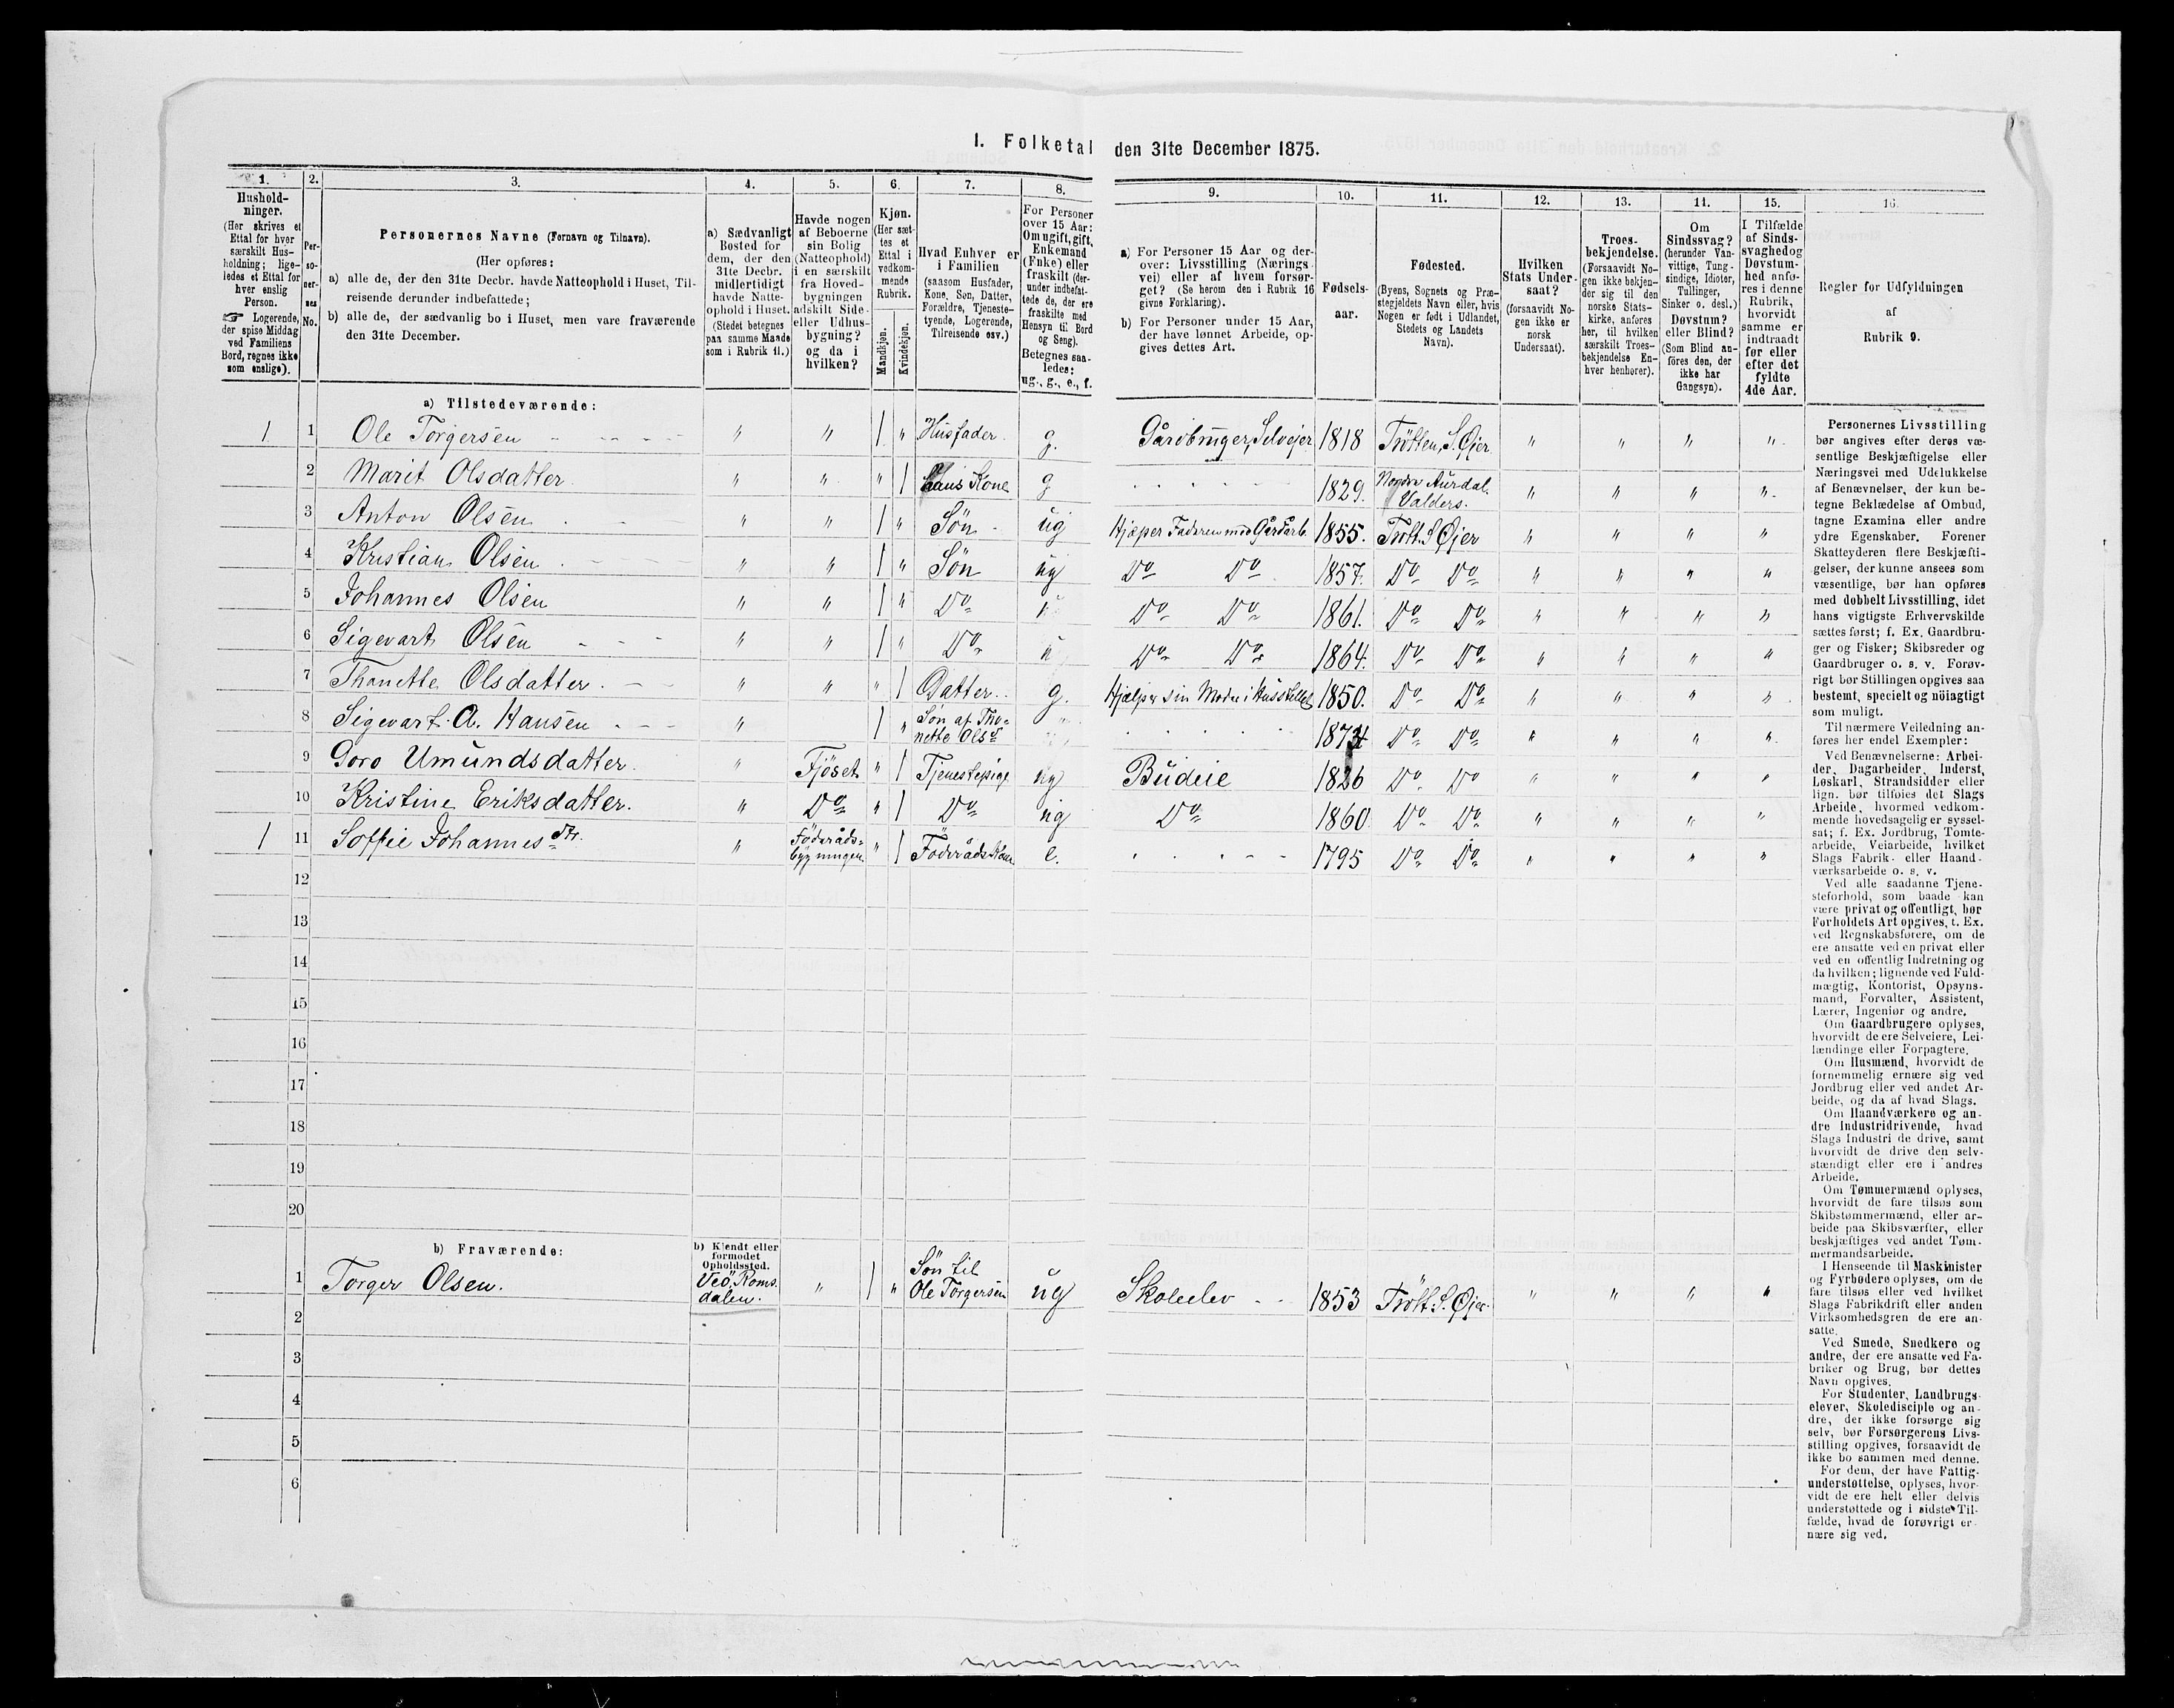 I. Folketal den 31te December 1875.
1.
Hushold-
ninger.
(Her skrives et
Ettal for hver
særskilt Hus-
holdning; lige-
ledes et Ettal for
hver enslig
Person.
☞ Logerende,
der spise Middag
ved Familiens
Bord, regnes ikke
som enslige).
2.
Per-
so-
ner-
nes
No.
3.
Personernes Navne (Fornavn og Tilnavn).
(Her opføres:
a) alle de, der den 31te Decbr. havde Natteophold i Huset, Til-
reisende derunder indbefattede;
b) alle de, der sædvanlig bo i Huset, men vare fraværende
den 31te December.
4.
a) Sædvanligt
Bosted for
dem, der den
31te Decbr.
midlertidigt
havde Natte-
ophold i Huset.
(Stedet betegnes
paa samme Maade
som i Rubrik 11.)
5.
Havde nogen
af Beboerne
sin Bolig
(Natteophold)
i en særskilt
fra Hoved-
bygningen
adskilt Side-
eller Udhus-
bygning?
og da i
hvilken?
6.
Kjøn.
(Her sæt-
tes et
Ettal i
vedkom-
mende
Rubrik.
Mandkjøn.
Kvindekjøn.
7.
Hvad Enhver er
i Familien
(saasom Husfader,
Kone, Søn, Datter,
Forældre, Tjeneste-
tyende, Logerende,
Tilreisende osv.)
8.
For Personer
over 15 Aar:
Om ugift, gift,
Enkemand
(Enke) eller
fraskilt (der-
under indbefat-
tede de, der ere
fraskilte med
Hensyn til Bord
og Seng).
Betegnes saa-
ledes:
ug., g., e., f.
9.
a) For Personer 15 Aar og der-
over: Livsstilling (Nærings-
vei) eller af hvem forsør-
get? (Se herom den i Rubrik 16
givne Forklaring).
b) For Personer under 15 Aar,
der have lønnet Arbeide, op-
gives dettes Art.
10.
Fødsels-
aar.
11.
Fødested.
(Byens, Sognets og Præ-
stegjeldets Navn eller, hvis
Nogen er født i Udlandet,
Stedets og Landets
Navn).
12.
Hvilken
Stats Under-
saat?
(forsaavidt No-
gen ikke er
norsk
Undersaat).
13.
Troes-
bekjendelse.
(Forsaavidt No-
gen ikke bekjen-
der sig til den
norske Stats-
kirke, anføres
her, til hvilken
særskilt Troes-
bekjendelse En-
hver henhører).
14.
Om
Sindssvag?
(herunder Van-
vittige, Tung-
sindige, Idioter,
Tullinger,
Sinker o. desl.)
Døvstum?
eller Blind?
(Som Blind an-
føres den, der
ikke har
Gangsyn).
15.
I Tilfælde
af Sinds-
svaghed og
Døvstum-
hed anfø-
res i denne
Rubrik,
hvorvidt
samme er
indtraadt
før eller
efter det
fyldte
4de Aar.
16.
Regler for Udfyldningen
af
Rubrik 9.
a) Tilstedeværende:
1 1 Ole Torgersen " " 1 " Husfader g. Gårdbruger, Selvejer 1818 Trötten, S. Øjer " " " "
2 Marit Olsdatter " " " 1 Hans Kone g 1829. Nordre Aurdal. Valders. " " " "
3 Anton Olsen " " 1 " Søn ug Hjelper Faderen med Gårdarb. 1855. Trött. S. Øjer " " " "
4 Kristian Olsen " " 1 " Søn ug Do Do 1857. Do Do " " " "
5 Johannes Olsen " " 1 " Do Do Do 1861. Do Do " " " "
6 Sigevart Olsen " " 1 " Do Do Do 1864. Do Do " " " "
7 Thonette Olsdatter " " " 1 Datter g. Hjælper sin Moder i Husstellet 1850. Do Do " " " "
8 Sigevart A. Hansen " 1 " Søn af Tho-
nette Olsd 1874 Do Do " " " "
9 Goro Umundsdatter " Fjöset " 1 Tjenestepige ug Budeie 1826 Do Do " " " "
10 Kristine Eriksdatter. " Do " 1 Do ug Do 1860 Do Do " " " "
1 11 Soffie Johannesdtr. " Föderåds-
bygningen " 1 Föderådskone e. 1795 Do Do " " " "
12
13
14
15
16
17
18
19
20
b) Fraværende:
b) Kjendt eller
formodet
Opholdssted.
1 Torger Olsen. Veö, Roms-
dalen. " 1 " Søn til
Ole Torgersen ug Skoleelev 1853 Trött. S. Øjer. " " " "
2
3
4
5
6
Personernes Livsstilling
bør angives efter deres væ-
sentlige Beskjæftigelse eller
Næringsvei med Udelukkelse
af Benævnelser, der kun be-
tegne Beklædelse af Ombud,
tagne Examina eller andre
ydre Egenskaber. Forener
Skatteyderen flere Beskjæfti-
gelser, der kunne ansees som
væsentlige, bør han opføres
med dobbelt Livsstilling, idet
hans vigtigste Erhvervskilde
sættes først; f. Ex. Gaardbru-
ger og Fisker; Skibsreder og
Gaardbruger o. s. v. Forøv-
rigt bør Stillingen opgives saa
bestemt, specielt og nöiagtigt
som muligt.
Til nærmere Veiledning an-
føres her endel Exempler:
Ved Benævnelserne: Arbei-
der, Dagarbeider, Inderst,
Løskarl, Strandsidder eller
lign. bør tilføies det Slags
Arbeide, hvormed vedkom-
mende hovedsagelig er syssel-
sat; f. Ex. Jordbrug, Tomte-
arbeide, Veiarbeide, hvilket
Slags Fabrik- eller Haand-
værksarbeide o. s. v.
Ved alle saadanne Tjene-
steforhold, som baade kan
være privat og offentligt, bør
Forholdets Art opgives, t. Ex.
ved Regnskabsførere, om de
ere ansatte ved en privat eller
ved en offentlig Indretning og
da hvilken; lignende ved Fuld-
mægtig, Kontorist, Opsyns-
mand, Forvalter, Assistent,
Lærer, Ingeniør og andre.
Om Gaardbrugere oplyses,
hvorvidt de ere Selveiere, Lei-
lændinge eller Forpagtere.
Om Husmænd, hvorvidt de
fornemmelig ernære sig ved
Jordbrug eller ved andet Ar-
beide, og da af hvad Slags.
Om Haandværkere og an-
dre Industridrivende, hvad
Slags Industri de drive, samt
hvorvidt de drive den selv-
stændigt eller ere i andres
Arbeide.
Om Tømmermænd oplyses,
hvorvidt de fare tilsøs som
Skibstømmermænd, eller ar-
beide paa Skibsværfter, eller
beskjæftiges ved andet Tøm-
mermandsarbeide.
I Henseende til Maskinister
og Fyrbødere oplyses, om de
fare tilsøs eller ved hvilket
Slags Fabrikdrift eller anden
Virksomhedsgren de ere an-
satte.
Ved Smede, Snedkere og
andre, der ere ansatte ved Fa-
briker og Brug, bør dettes
Navn opgives.
For Studenter, Landbrugs-
elever, Skoledisciple og an-
dre, der ikke forsørge sig
selv, bør Forsørgerens Livs-
stilling opgives, forsaavidt de
ikke bo sammen med denne.
For dem, der have Fattig-
understøttelse, oplyses, hvor-
vidt de ere helt eller delvis
understøttede og i sidste Til-
fælde, hvad de forøvrigt er-
nære sig ved.